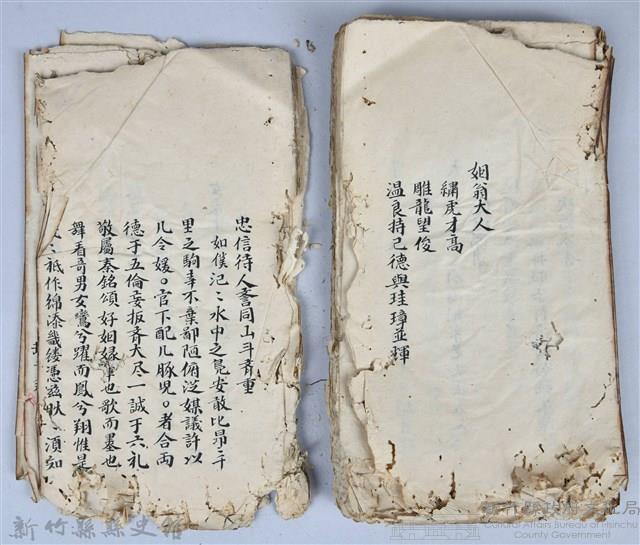 姻翁大人
繡虎才高
雕龍望俊
温良持己德與珪璋並輝
忠信待人譽同山斗齊重
如僕汜〻水中之鳧安敢比昂〻千
里之駒幸不棄鄙陋俯泛媒議許以
几令媛。官下配几豚児。者合両
德于五倫妄扳齊大尽一誠于六礼
敬属秦銘頌好姻縁
也歌而墨也
舞看哥男女鸞兮躍而鳳兮翔惟是
祗作綿漆幾縷憑兹 湏如
新竹縣縣史館
新竹縣政府文化局
Cultural Affairs Bureau of Hsinchu
County Government